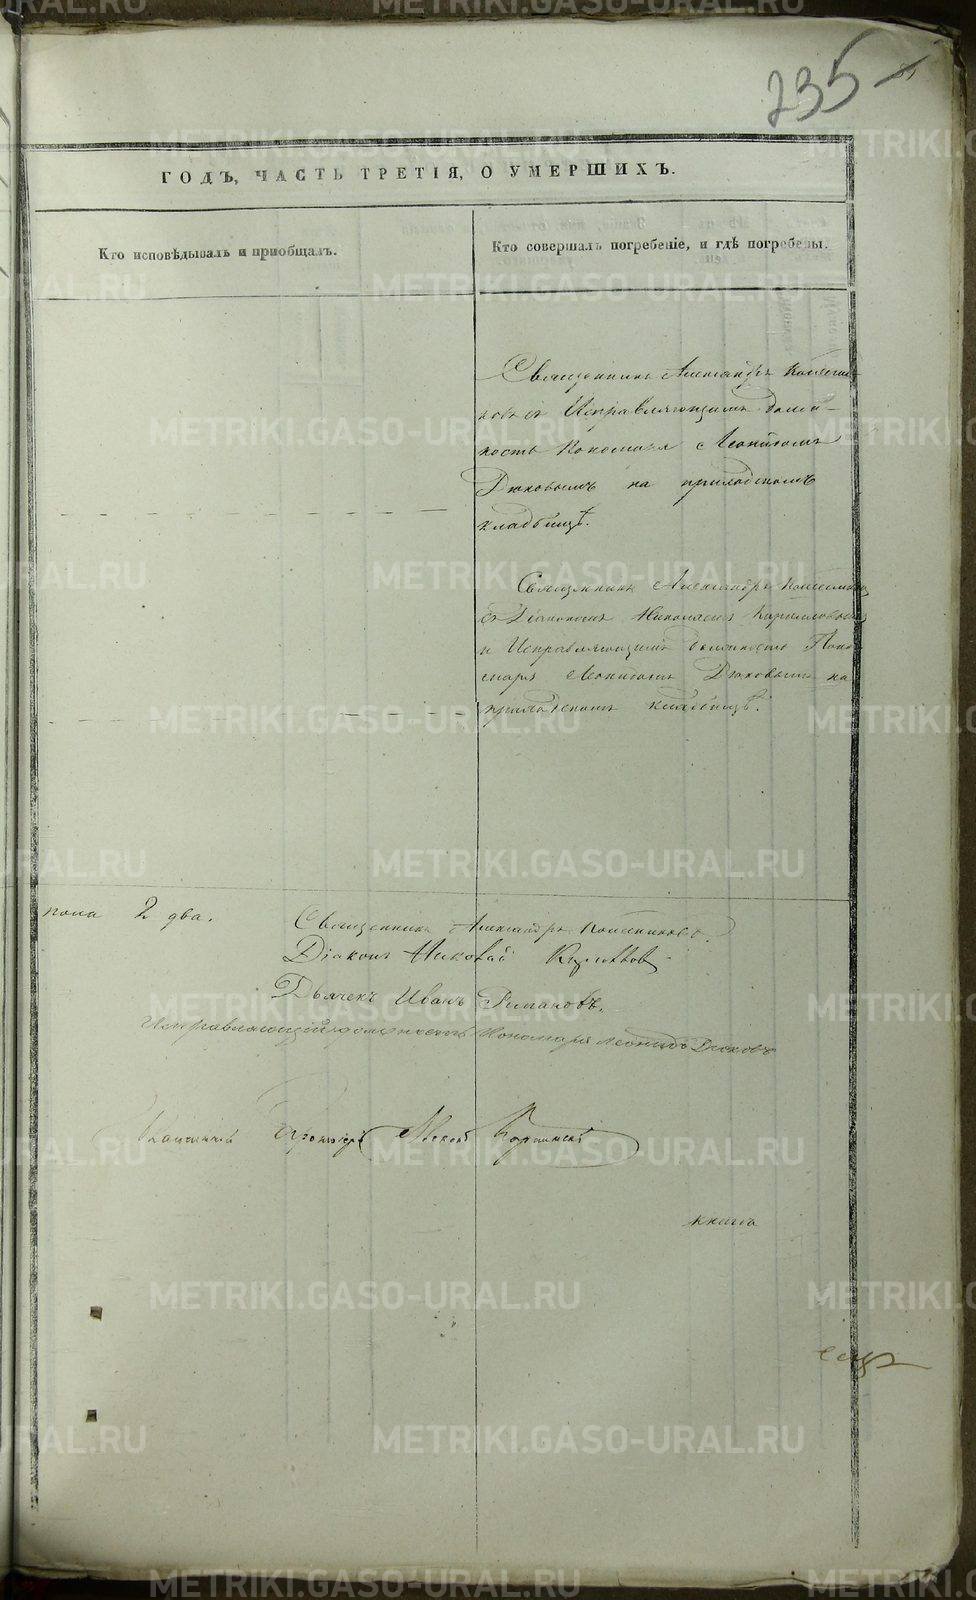 235
ГОДЪ, ЧАСТЬ ТРЕТІЯ, О УМЕРШИХЪ.
Кто исповѣдывалъ и пріобщалъ.
Кто совершалъ погребеніе, и гдѣ погребены.
Священникъ Александръ Колесни-
ковъ съ Исправляющимъ долж-
ность Пономаря Леонидомъ
Дюковымъ на приходскомъ
кладбищѣ.
Священникъ Александръ
съ Діакономъ Николаемъ
и Исправляющимъ должность Поно-
маря Леонидомъ Дюковымъ на
приходскомъ кладбищѣ.
пола 2 два.
Священникъ Александръ Колесниковъ.
Діаконъ Николай
Дьячекъ Иванъ
Исправляющій должность Пономаря Леонидъ Дюковъ
книга
METRIKI.GASO-URAL.RU